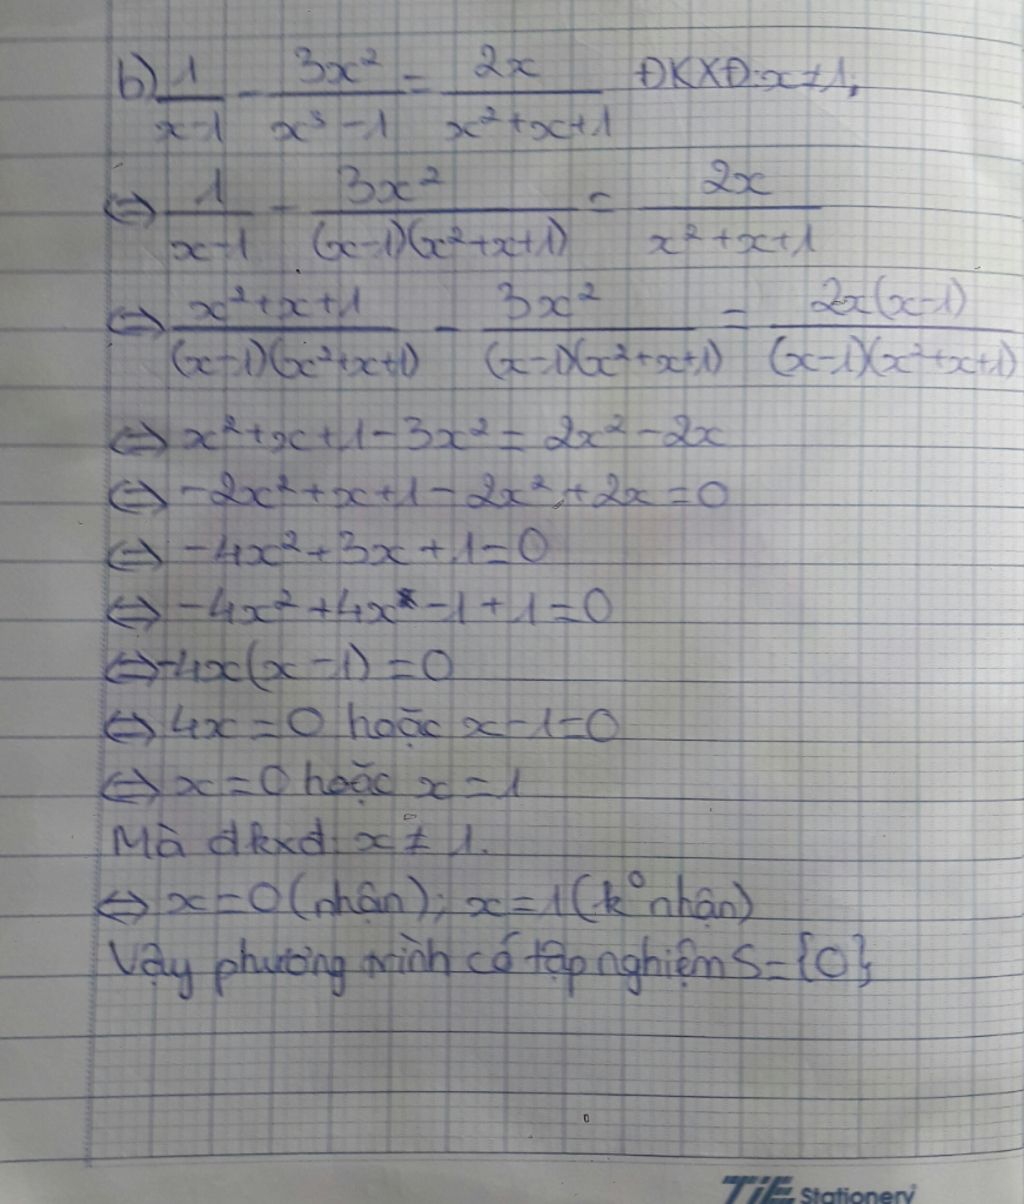 b) 1/(x-1) - 3x²/(x³-1) = 2x/(x²+x+1) ĐKXĐ: x≠1;
⇔ 1/(x-1) - 3x²/((x-1)(x²+x+1)) = 2x/(x²+x+1)
⇔ (x²+x+1)/((x-1)(x²+x+1)) - 3x²/((x-1)(x²+x+1)) = 2x(x-1)/((x-1)(x²+x+1))
⇔ x²+x+1-3x² = 2x²-2x
⇔ -2x²+x+1-2x²+2x=0
⇔ -4x²+3x+1=0
⇔ -4x²+4x-1+1=0
⇔ -4x(x-1)=0
⇔ 4x=0 hoặc x-1=0
⇔ x=0 hoặc x=1
Mà đkxđ: x≠1.
⇔ x=0 (nhận); x=1 (k⁰ nhận)
Vậy phương trình có tập nghiệm S={0}
TiE Stationery